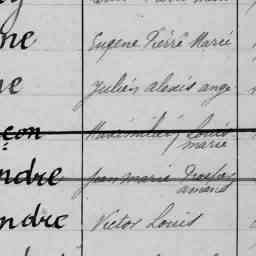 ne Eugène Pierre Marie
ne Julien alexis ange
çon Maximilien Louis
marie
ndre Jean marie
amand
ndre Victor Louis